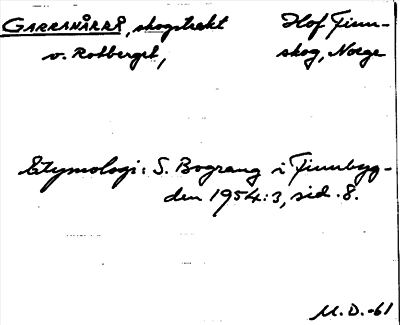 GARRANÅRRÅ, skogstrakt
v. Rotberget,
Hof Finn-
skog, Norge
Etymologi: S. Bograng i Finnbyg-
den 1954:3, sid. 8.
M. D. -61